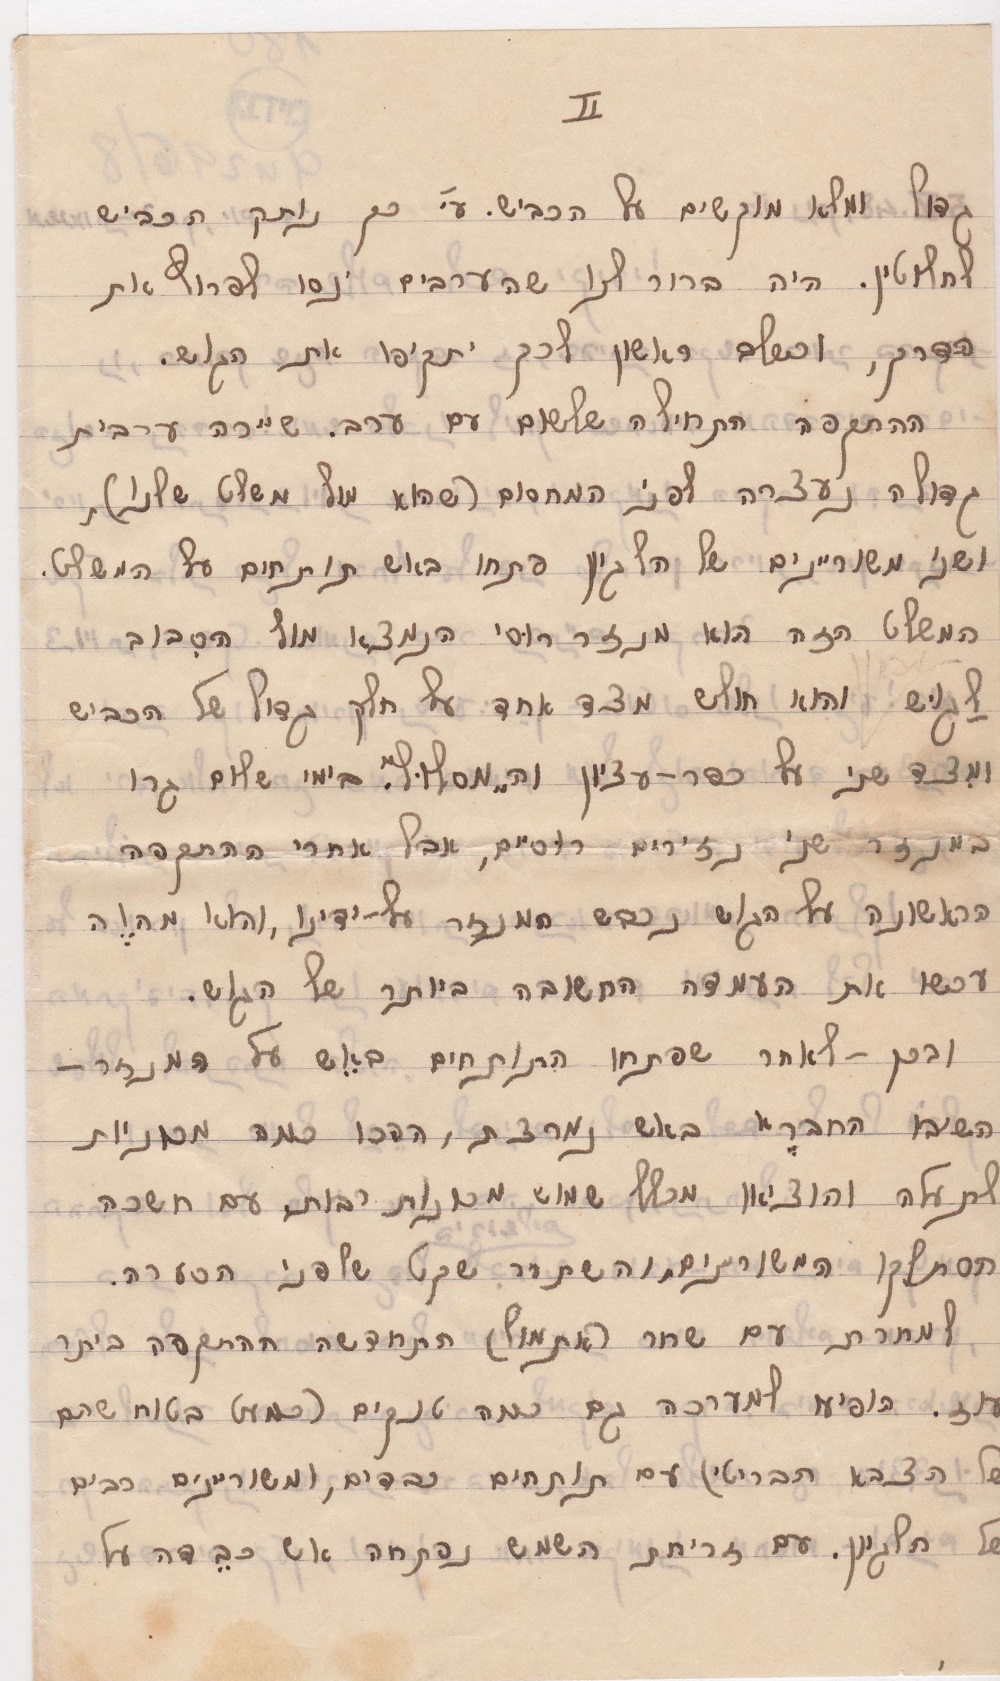 II
גדול ומלא מוקשים על הכביש. ע״י כך נותק הכביש
לחלוטין. היה ברור לנו שהערבים ינסו לפרוץ את
הדרך, וכשלב ראשון לכך יתקיפו את הגוש.
ההתקפה התחילה שלשום עם ערב. שיירה ערבית
גדולה נעצרה לפני המחסום (שהוא מול משלט שלנו),
ושני משוריינים של הלגיון פתחו באש תותחים על המשלט.
המשלט הזה הוא מנזר רוסי הנמצא מול הסבוב
לגוש והוא חולש מצד אחד על חלק גדול של הכביש
ומצד שני על כפר-עציון וה„מסלול". בימי שלום גרו
במנזר שני נזירים רוסיים, אבל אחרי ההתקפה
הראשונה על הגוש נכבש המנזר על-ידינו, והוא מהוֶה
עכשו את העמדה החשובה ביותר של הגוש.
ובכן - לאחר שפתחו התותחים באש על המנזר -
השיבו החברָא באש נמרצת, הפכו כמה מכוניות
לתעלה והוציאו מכלל שמוש מכונות רבות, עם חשכה
הסתלקו המשוריינים, והשתרר שקט שלפני הסערה.
למחרת עם שחר (אתמול) התחדשה ההתקפה ביתר
עוז. הופיעו למערכה גם כמה טנקים (כמעט בטוח שהם
של הצבא הבריטי) עם תותחים כבדים, ומשוריינים רבים
של הלגיון. עם זריחת השמש נפתחה אש כבֵדה על